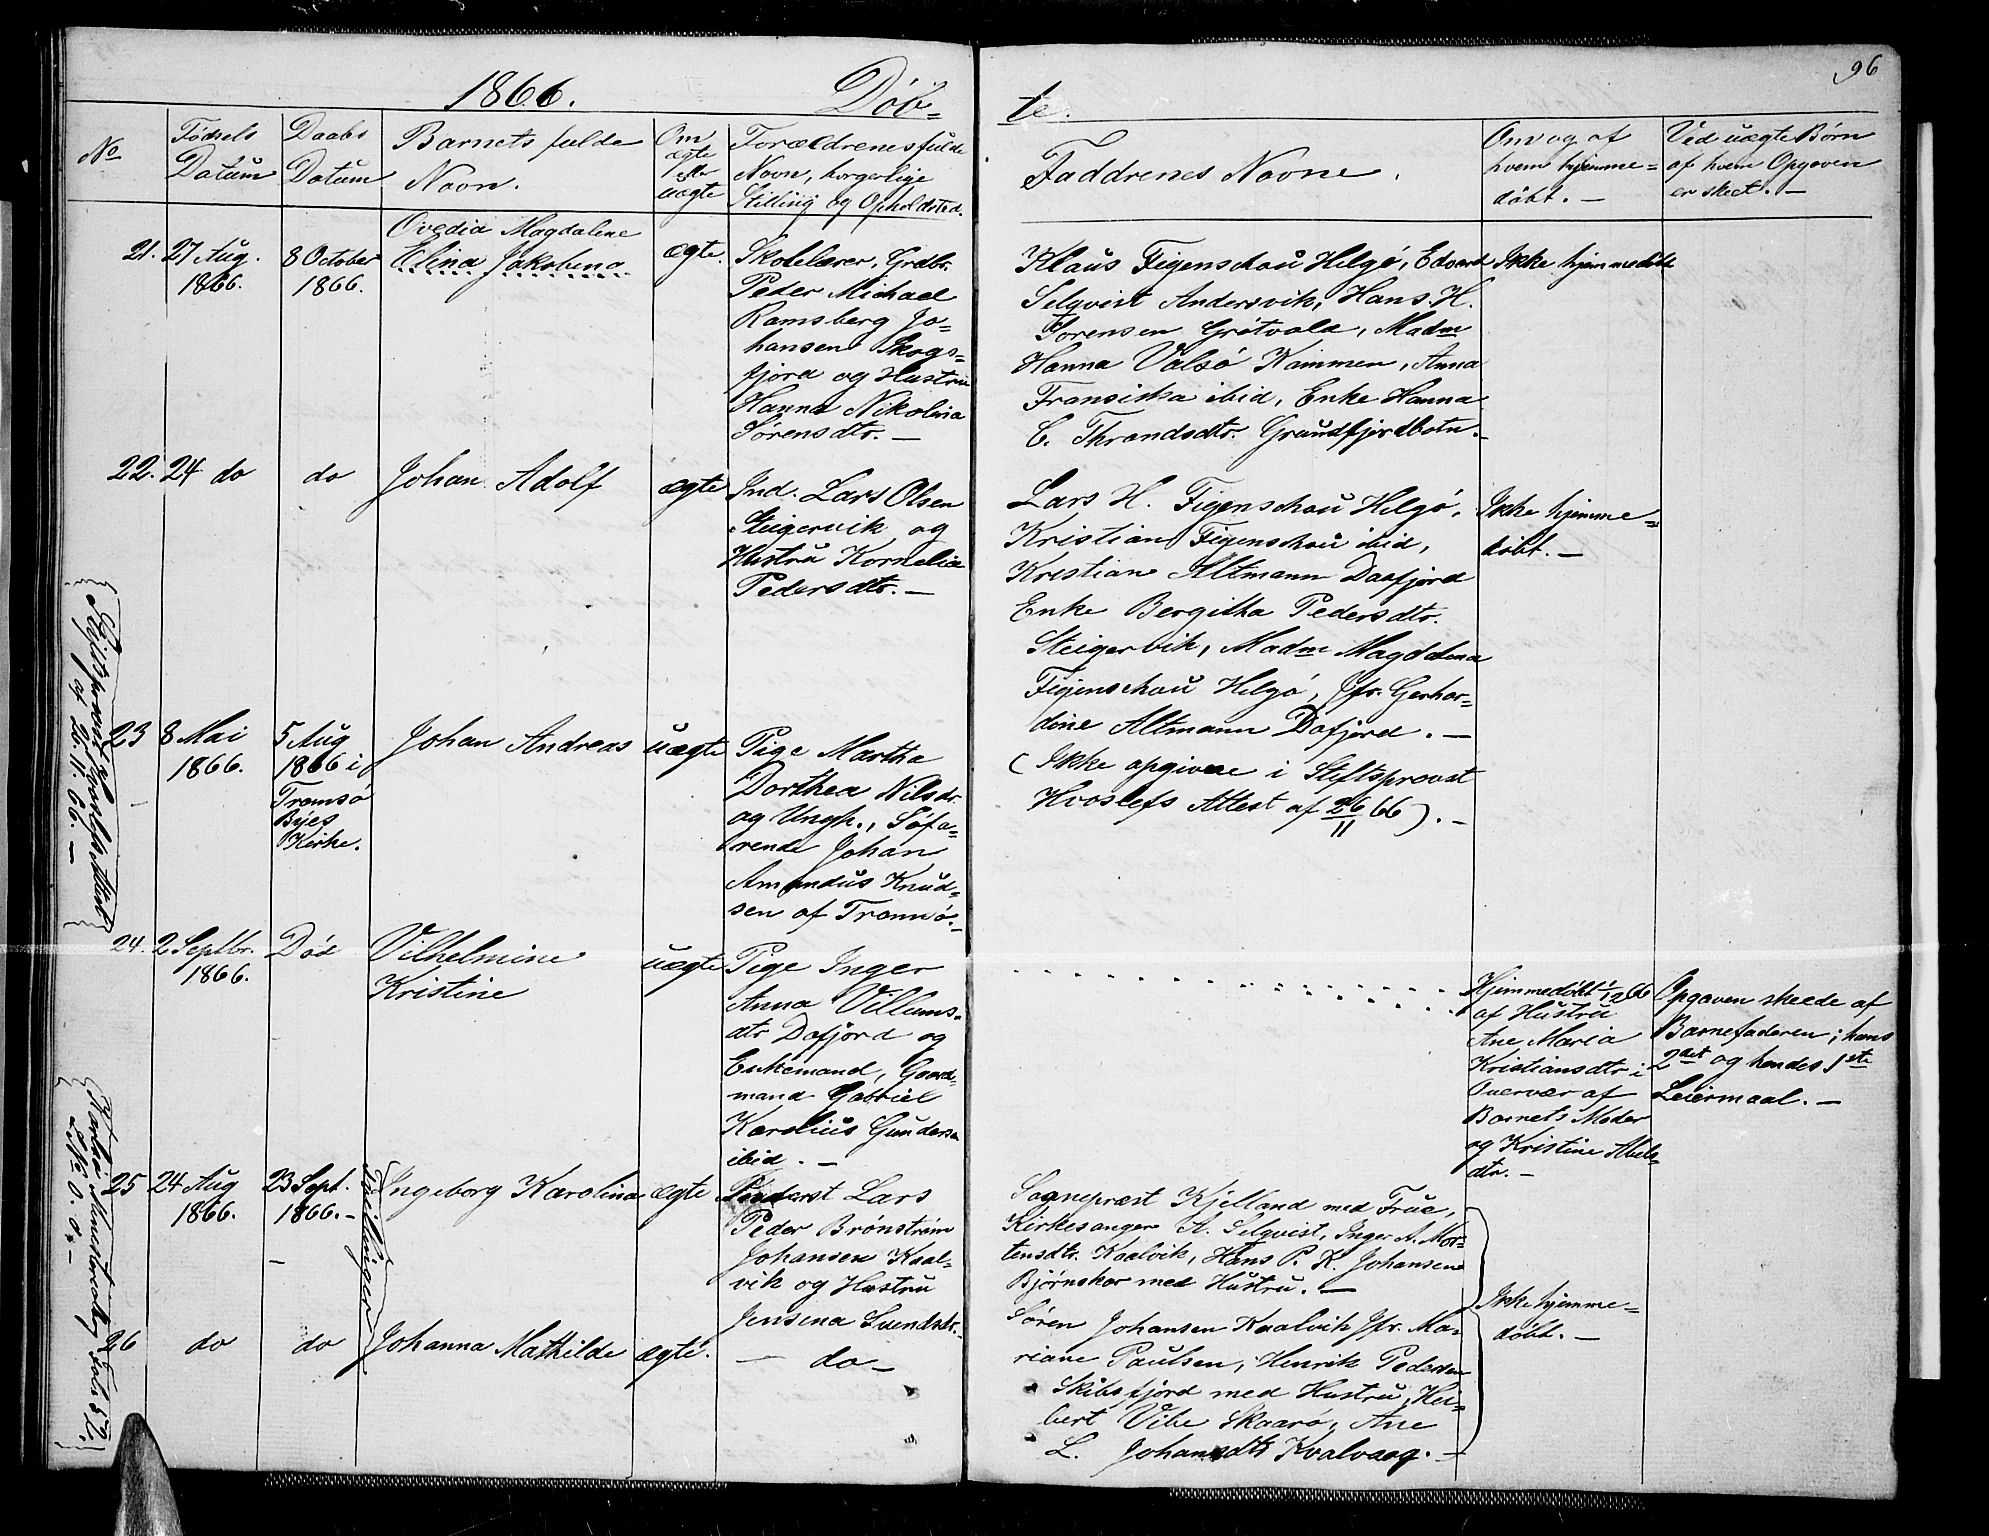 96
1866. Døb-
te.
No
Fødsels
Datum
Daabs
Datum
Barnets fulde
Navn.
Om
ægte
eller
uægte
Forældrenes fulde
Navn, borgerlige
Stilling og Opholdsted.
Faddrenes Navne.
Om og af
hvem hjemme-
døbt. —
Ved uægte Børn
af hvem Opgaven
er skeet. —
21.
27 Aug.
1866.
8 October
1866.
Ovedia Magdalene
Elina Jakobina
ægte.
Skolelærer, Grdbr.
Peder Michael
Ramsberg Jo-
hansen Skogs-
fjord og Hustru
Hanna Nikolina
Sørensdtr. —
Klaus Figenschau Helgø, Edvard
Selqvist Andersvik, Hans H.
Sørensen Grøtvold, Madm
Hanna Valsø Kammen, Anna
Fransiska ibid, Enke Hanna
C. Thrandsdtr. Grundfjordbotn. —
Ikke hjemmedøbt
22.
24 do
do
Johan Adolf
ægte
Ind. Lars Olsen
Steigervik og
Hustru Kornelia
Pedersdtr. —
Lars H. Figenschau Helgø,
Kristian Figenschau ibid,
Kristian Altmann Daafjord
Enke Bergitha Pedersdtr.
Steigervik, Madm Magdalena
Figenschau Helgø, Jfr. Gerhar-
dine Altmann Dafjord. —
Ikke hjemme-
døbt. —
23
8 Mai
1866.
5 Aug
1866 i
Tromsø
Byes
Kirke.
Johan Andreas
uægte
Pige Martha
Dorthea Nilsdr.
og Ungk., Søfa-
rende Johan
Amandus Knud-
sen af Tromsø. —
(Ikke opgivne i Stiftsprovst
Hvoslefs Attest af 26/11 66). —
24.
2 Septbr.
1866.
Død
Vilhelmine
Kristine
uægte
Pige Inger
Anna Villums-
dtr Dafjord og
Enkemand, Gaard-
mand Gabriel
Karolius Gunders
ibid. —
Hjemmedøbt 1/12 66
af Hustru
Ane Maria
Kristiansdtr i
Overvær af
Barnets Moder
og Kristine Abels-
dtr. —
Opgaven skeede af
Barnefaderen; hans
2det og hendes 1ste
Leiermaal. —
25
24 Aug
1866.
23 Sept.
1866. —
Tvillinger
Ingeborg Karolina
ægte
Lars
Peder Brønstrøm
Johansen Kaal-
vik og Hustru
Jensina Lundsdtr.
Sognepræst Kjelland med Frue,
Kirkesanger A. Selqvist, Inger A. Mor-
tensdtr. Kaalvik, Hans P. K. Johansen
Bjørnskar med Hustru. —
Ikke hjemme-
døbt. —
26
do
do
Johanna Mathilde
ægte.
— do —
Søren Johansen Kaalvik Jfr. Ma-
riane Paulsen, Henrik Pedersen
Skibsfjord med Hustru, Hei-
bert Vibe Skaarø, Ane
L. Johansdtr Kvalvaag. —
Stiftsprovst Hvoslefs Attest
af 26. 11. 66. —